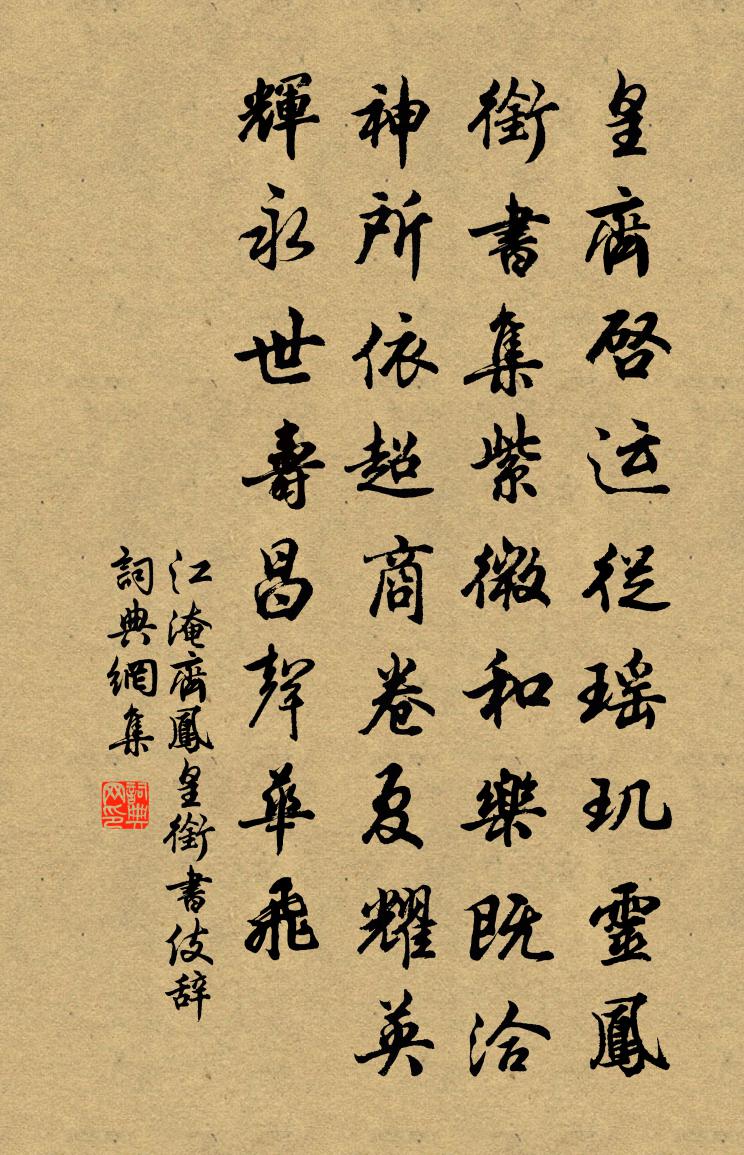 皇齊啓运從瑶玑靈鳳
銜書集紫微和樂既洽
神所依超商卷夏耀英
輝永世壽昌聲華飛
江淹齊鳳皇銜書伎辞
詞典網集
詞典
网印